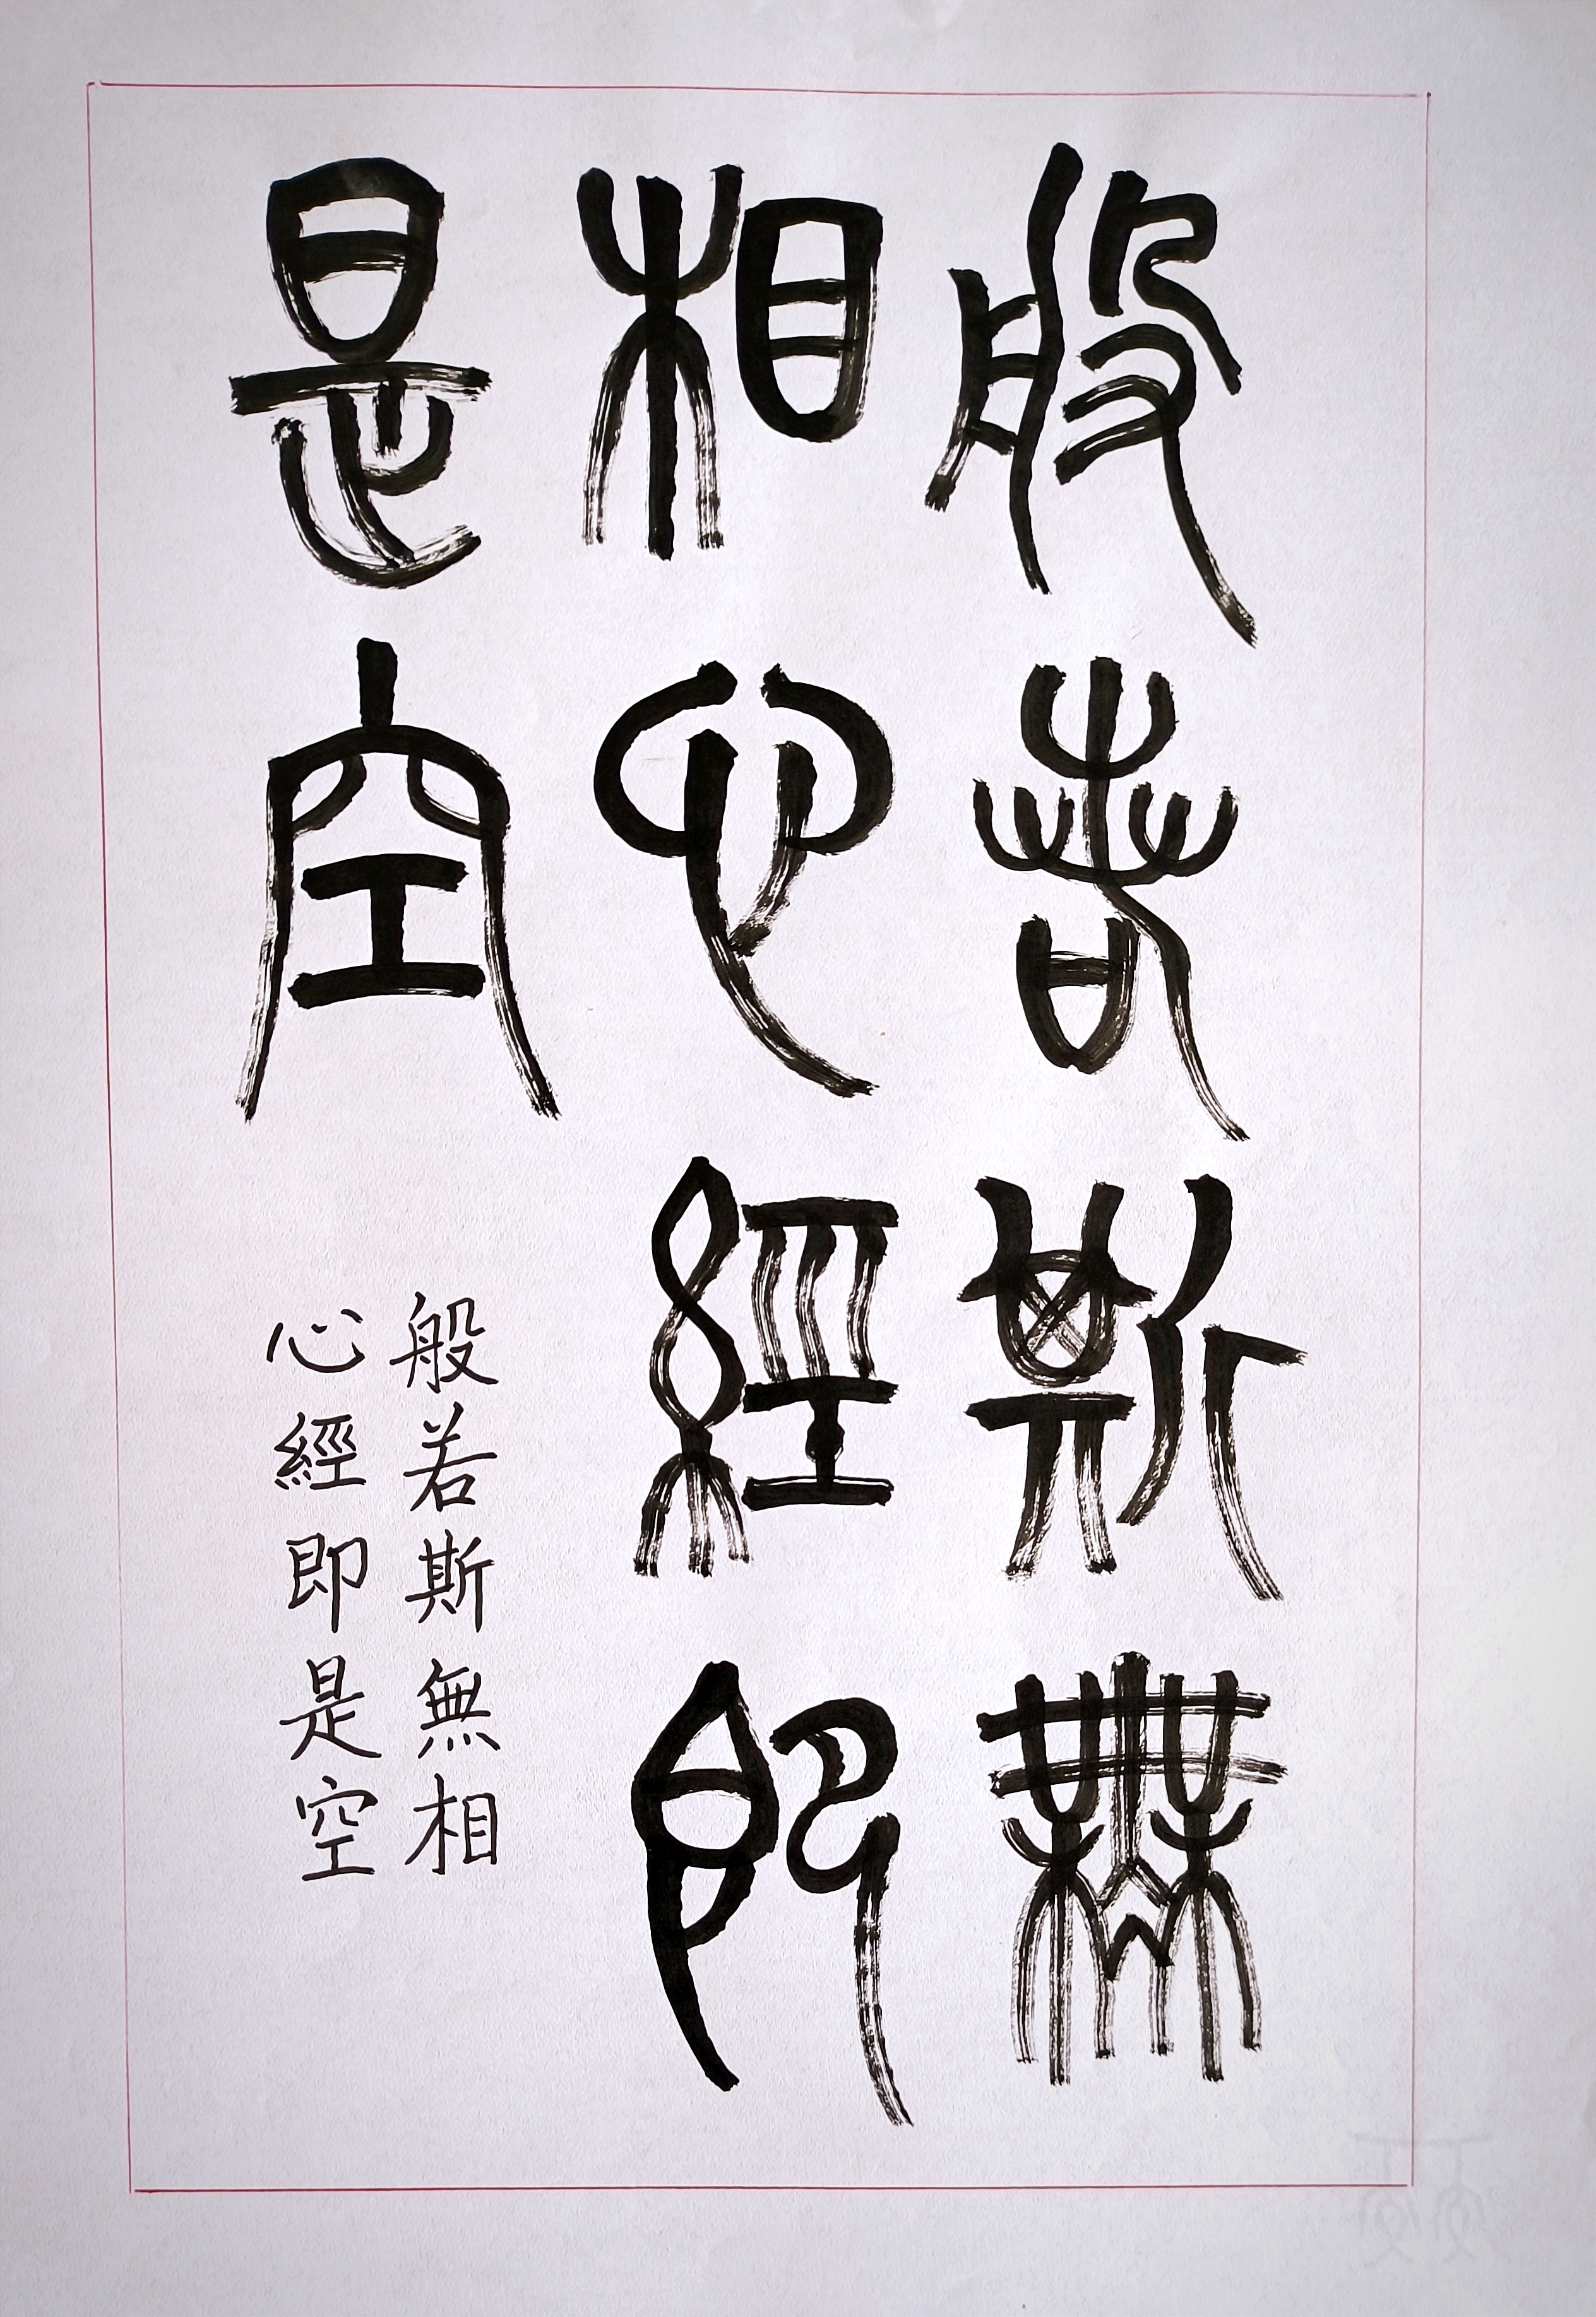 般若斯無
相心經即
是空
般若斯無相
心經即是空